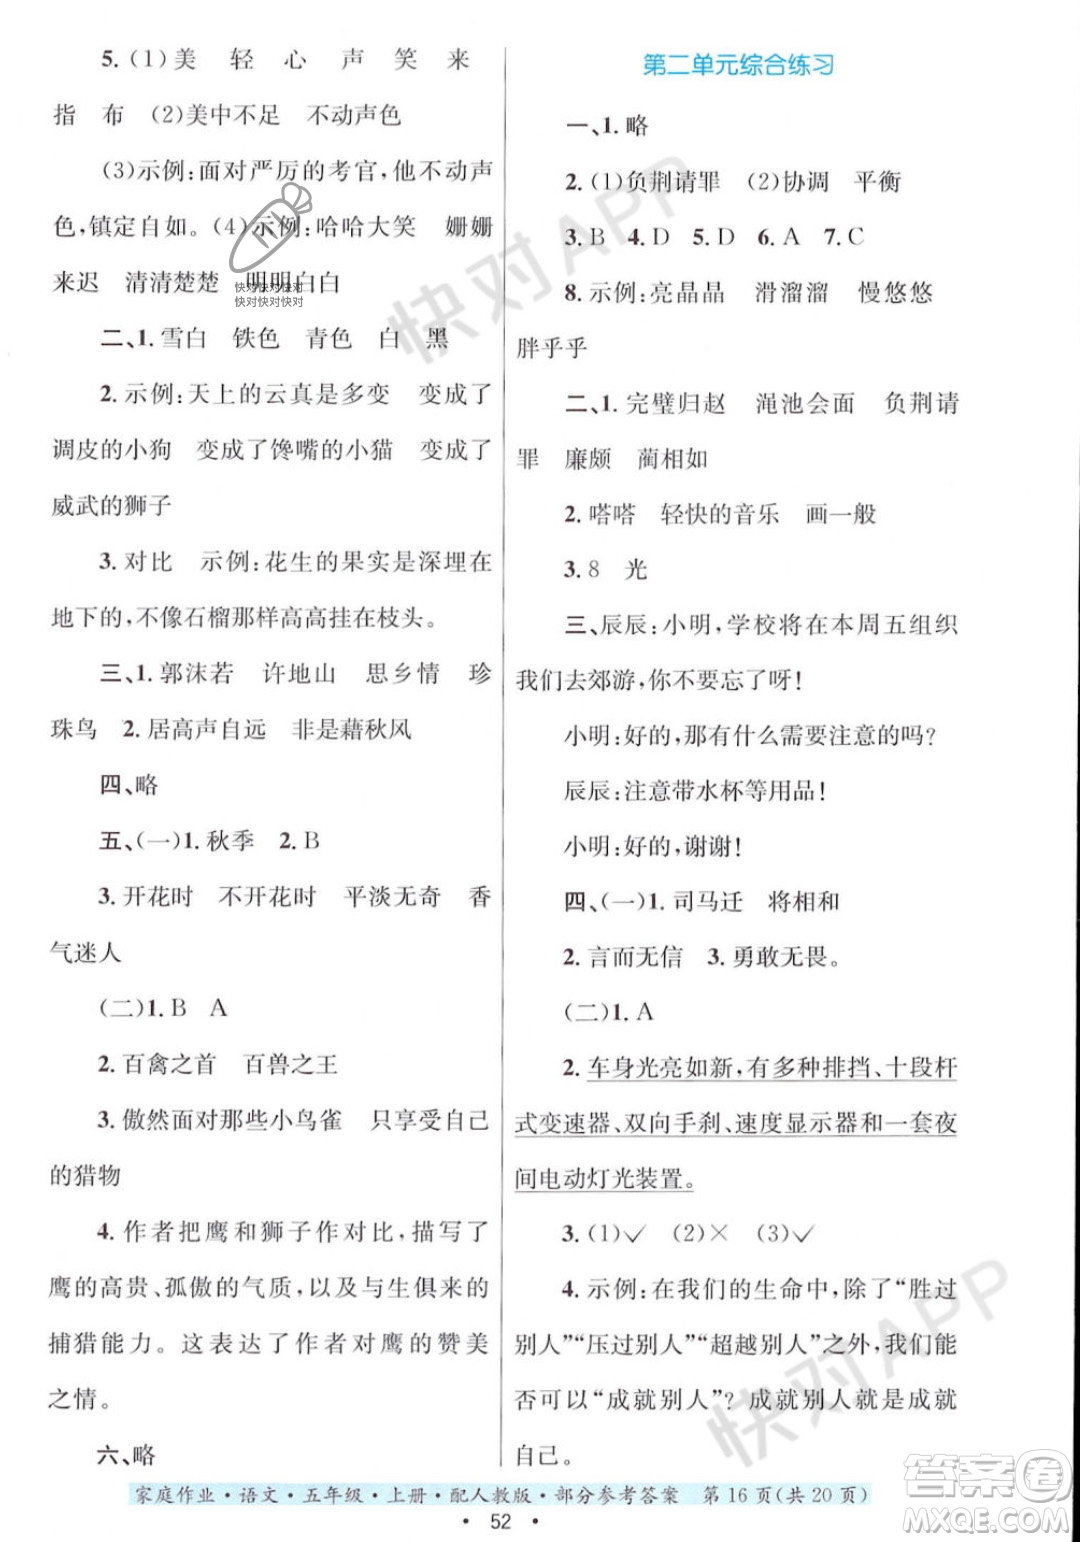 5.(1)美 轻 心 声 笑 来
指 布 (2)美中不足 不动声色
(3)示例:面对严厉的考官,他不动声
色,镇定自如。(4)示例:哈哈大笑 姗姗
来迟 清清楚楚 明明白白
快对快对快对
快对快对快对
二、1.雪白 铁色 青色 白 黑
2.示例:天上的云真是多变 变成了
调皮的小狗 变成了馋嘴的小猫 变成了
威武的狮子
3.对比 示例:花生的果实是深埋在
地下的,不像石榴那样高高挂在枝头。
三、1.郭沫若 许地山 思乡情 珍
珠鸟 2.居高声自远 非是藉秋风
四、略
五、(一)1.秋季 2.B
3.开花时 不开花时 平淡无奇 香
气迷人
(二)1.B A
2.百禽之首 百兽之王
3.傲然面对那些小鸟雀 只享受自己
的猎物
4.作者把鹰和狮子作对比,描写了
鹰的高贵、孤傲的气质,以及与生俱来的
捕猎能力。这表达了作者对鹰的赞美
之情。
六、略
第二单元综合练习
一、1.略
2.(1)负荆请罪 (2)协调 平衡
3.B 4.D 5.D 6.A 7.C
8.示例:亮晶晶 滑溜溜 慢悠悠
胖乎乎
二、1.完璧归赵 渑池会面 负荆请
罪 廉颇 蔺相如
2.嗒嗒 轻快的音乐 画一般
3.8 光
三、辰辰:小明,学校将在本周五组织
我们去郊游,你不要忘了呀!
小明:好的,那有什么需要注意的吗?
辰辰:注意带水杯等用品!
小明:好的,谢谢!
四、(一)1.司马迁 将相和
2.言而无信 3.勇敢无畏。
(二)1.A
2.车身光亮如新,有多种排挡、十段杆
式变速器、双向手刹、速度显示器和一套夜
间电动灯光装置。
3.(1)✓ (2)× (3)✓
4.示例:在我们的生命中,除了“胜过
别人”“压过别人”“超越别人”之外,我们能
否可以“成就别人”?成就别人就是成就
自己。
快对APP
快对APP
家庭作业·语文·五年级·上册·配人教版·部分参考答案 第16页(共20页)
• 52 •
答案卷
MXQE.COM